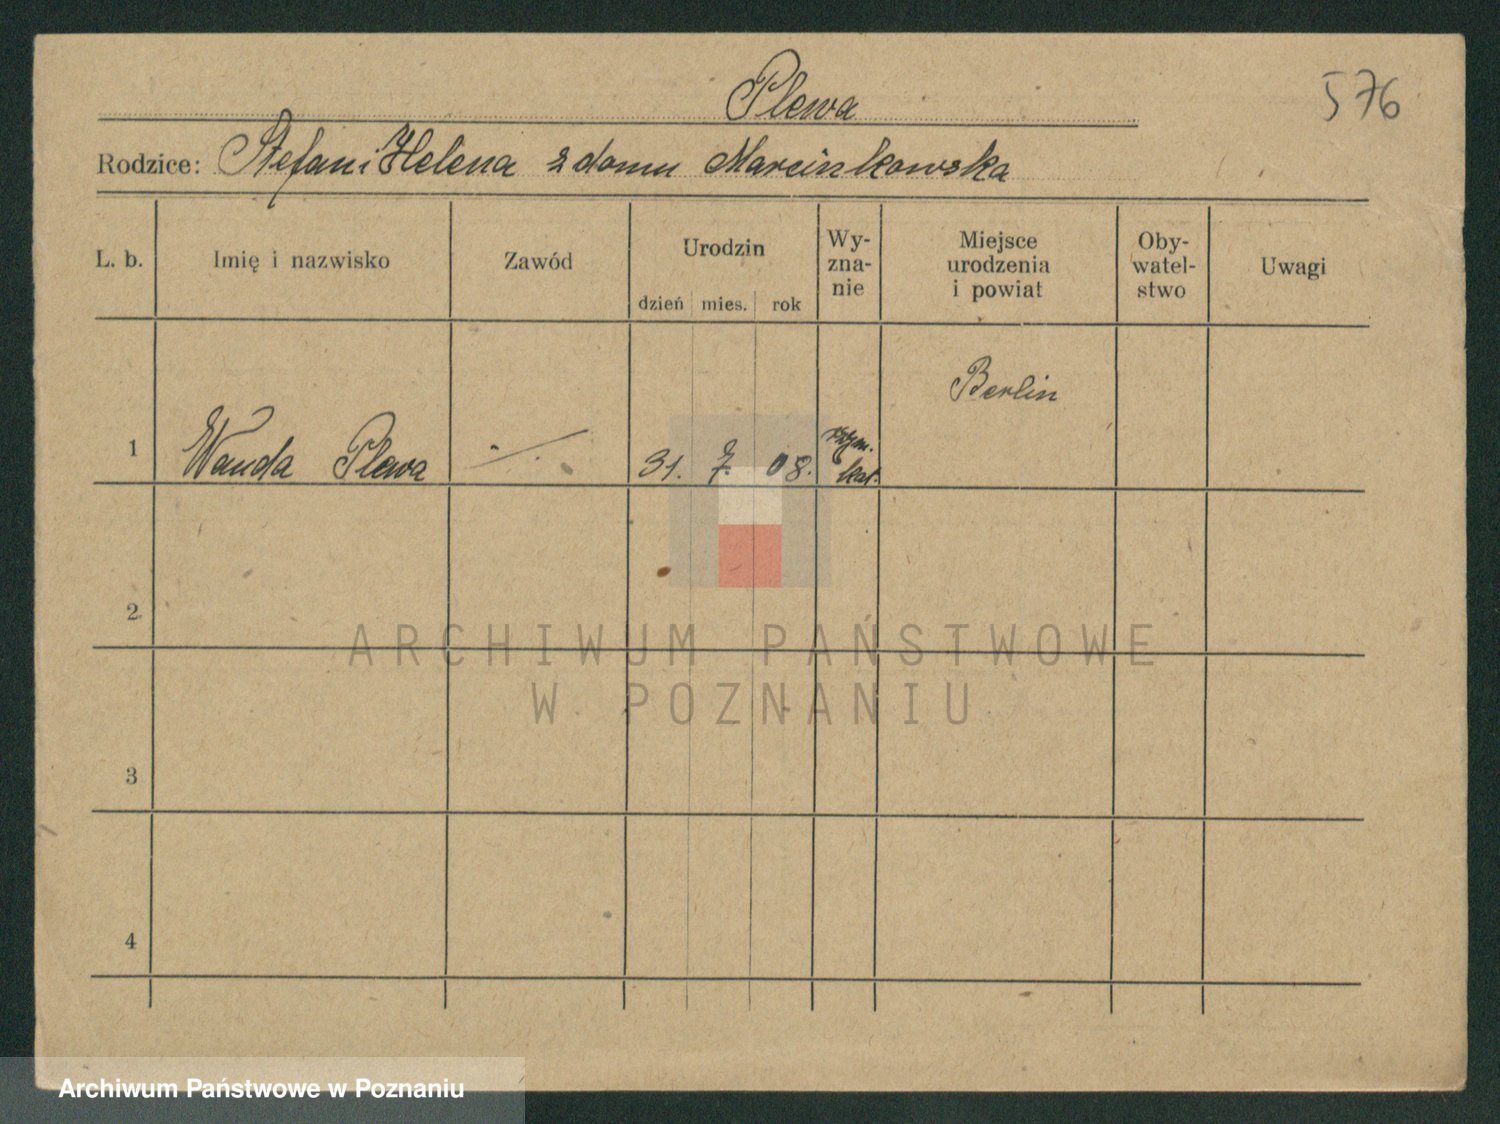 Plewa
576
Rodzice: Stefan i Helena z domu Marcinkowska
L. b. Imię i nazwisko Zawód Urodzin Wy- Miejsce Oby- Uwagi
zna- urodzenia watel-
nie i powiat stwo
dzień mies. rok
Berlin
1 Wanda Plewa 31. 7. 08. rzym.
kat.
2
3
4
ARCHIWUM PAŃSTWOWE
W POZNANIU
Archiwum Państwowe w Poznaniu